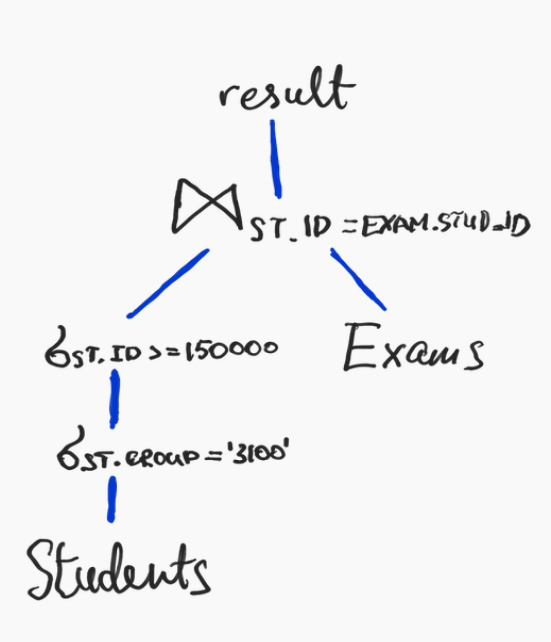 result
⋈ ST.ID = EXAM.STUD_ID
σ ST.ID >= 150000
Exams
σ ST.GROUP = '3100'
Students